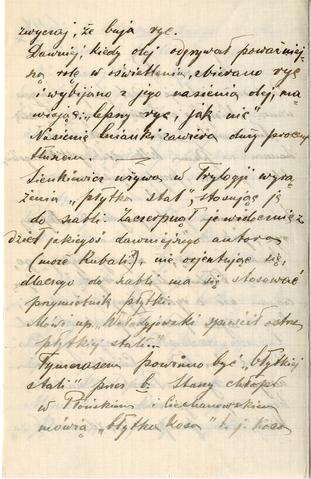 zwyczaj, że buja ryc.
Dawniej, kiedy olej odgrywał poważniej-
szą rolę w oświetleniu, zbierano ryc
i wybijano z jego nasienia olej, ma-
wiając: „lepszy ryc, jak nic"
Nasienie lnianki zawiera duży procent
tłuszczu.
Sienkiewicz używa w Trylogji wyra-
żenia „płytka stal", stosując ją
do szabli. Zaczerpnął je widocznie z
dzieł jakiegoś dawniejszego autora
(może Kubali?), nie orjentując się,
dlaczego do szabli ma się stosować
przymiotnik płytki.
Mówi np. Wołodyjowski ostrze
płytkiej stali...
Tymczasem powinno być „błytkiej
stali" przez b. Starzy chłopi
w Płońskiem i Ciechanowskiem
mówią „błytka kosa" t. j. kosa